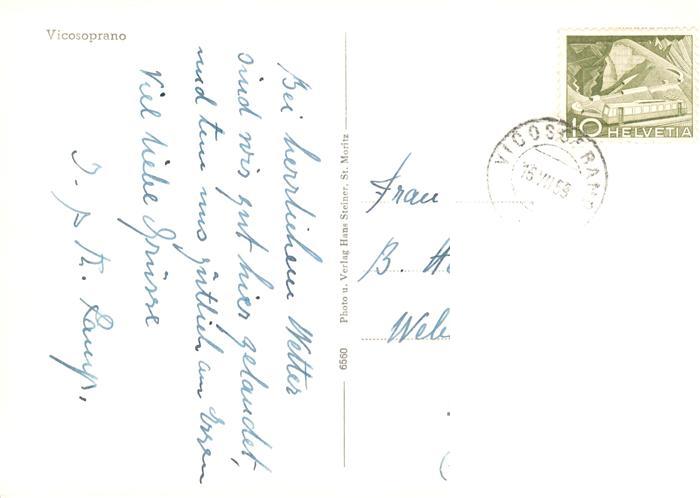 Vicosoprano
Bei herrlichem Wetter
sind wir gut hier gelandet
und tun uns gütlich am Essen
Viel liebe Grüsse
6560 Photo u. Verlag Hans Steiner, St. Moritz
10 HELVETIA
VICOSOPRANO
Frau
B. H
Web